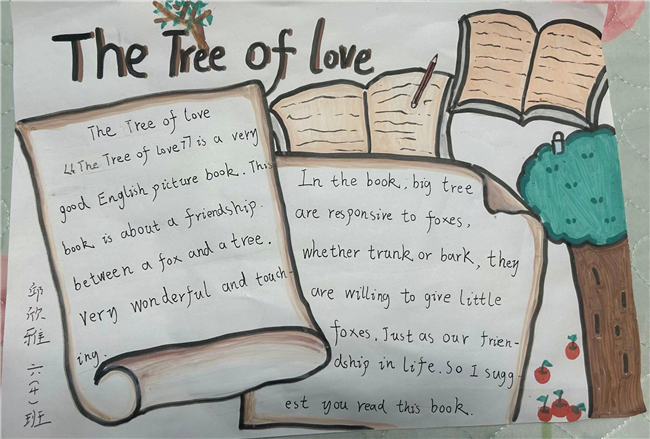 The Tree of love
The Tree of love
“The Tree of love” is a very
good English picture book. This
book is about a friendship
between a fox and a tree.
very wonderful and touch-
ing.
In the book, big tree
are responsive to foxes,
whether trunk or bark, they
are willing to give little
foxes. Just as our frien-
dship in life. So I sugg-
est you read this book.
邱欣雅 六(4)班